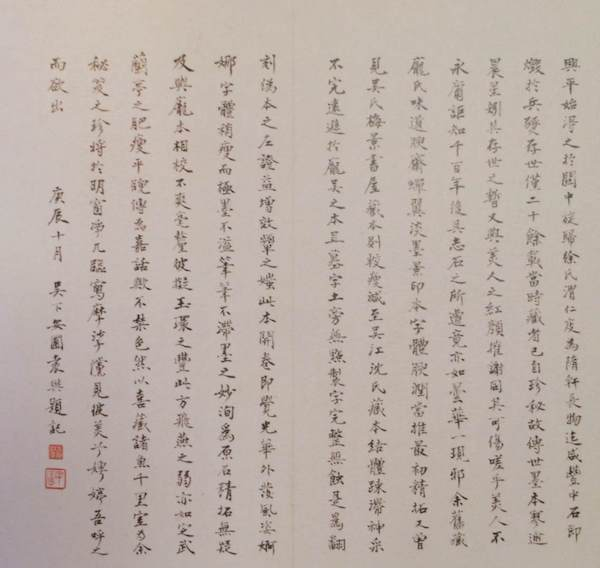 興平始得之於關中旋歸徐氏渭仁度為隋軒長物迨咸豐中石即
燬於兵燹存世僅二十餘載當時藏者已自珍秘故傳世墨本寥逾
晨星矧其存世之暫又與美人之紅顏摧謝同其可傷嗟乎美人不
永膺詎知千百年後其志石之所遭竟亦如曇華一現邪余舊藏
龐氏味道腴齋蟬翼淡墨景印本字體腴潤當推最初精拓又曾
見吳氏梅景書屋藏本則較瘦減至吳江沈氏藏本結體疎滯神采
不完遠遜於龐吳之本且墓字土旁無點製字完整無蝕是為翻
刻偽本之左證益增效顰之媸此本開卷即覺光華外發風姿婀
娜字體稍瘦而極墨不溢筆筆不滯墨之妙洵為原石精拓無疑
及與龐本相校不爽毫釐彼擬玉環之豐此方飛燕之弱亦如定武
蘭亭之肥瘦乎傳為嘉話歟不禁色然以喜藏諸魚千里室乃余
秘笈之珍將於明窗淨几臨寫摩挲僅見彼美兮娉婷吾呼之
而欲出
庚辰十月 吳下安圃袁題記